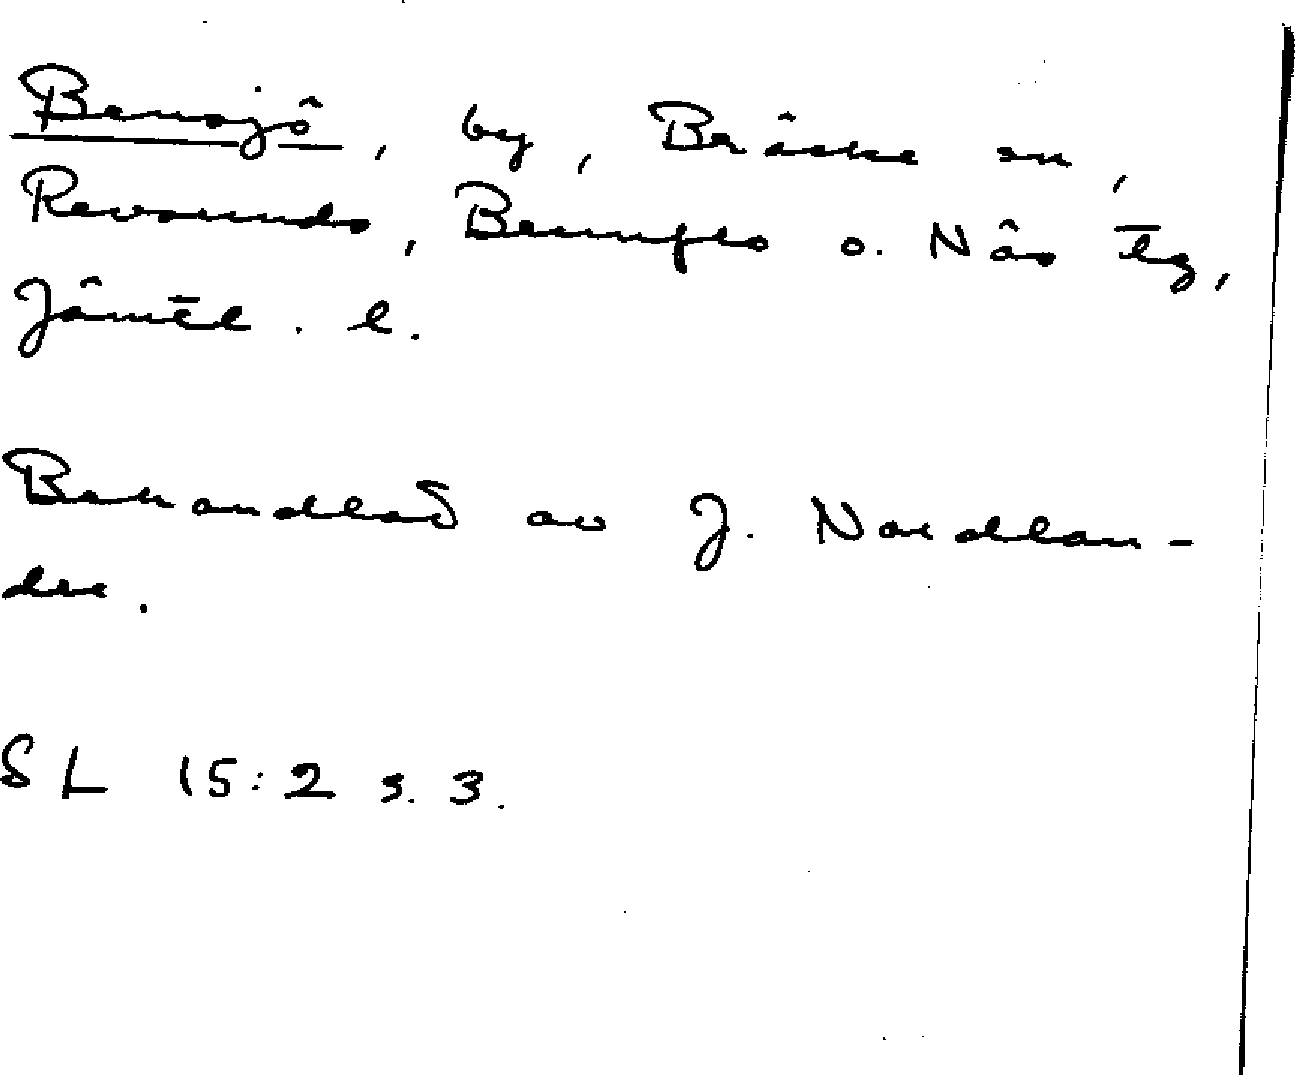 Bensjö, by, Bräcke sn,
Revsunds, Brunflo o. Näs tg,
Jämtl. l.
Behandlad av J. Nordlan-
der.
SL 15:2 s. 3.